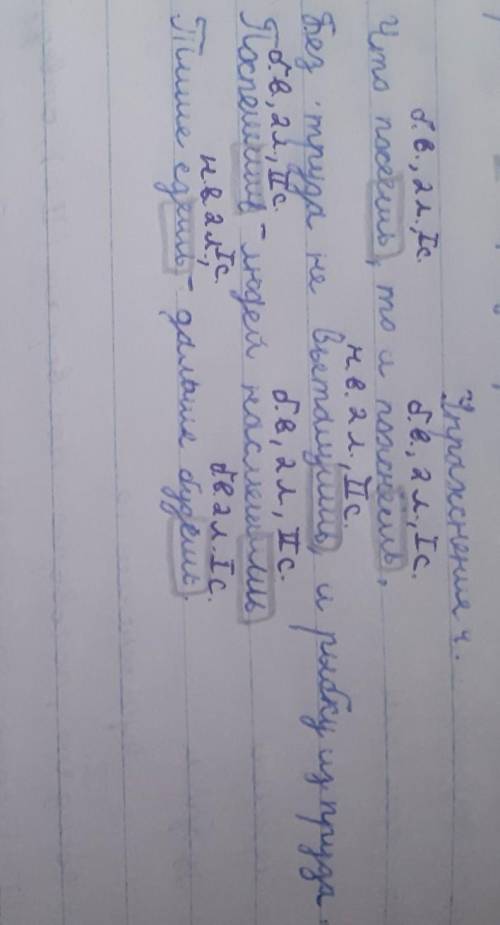 Упражнение 4.
б.в., 2л., Iс. б.в., 2л., Iс.
Что посеешь, то и пожнёшь.
н.в. 2л., IIс.
Без труда не вытащишь и рыбку из пруда.
б.в., 2л., IIс. б.в., 2л., IIс.
Поспешишь - людей насмешишь
н.в 2л., Iс. бв 2л. Iс.
Тише едешь - дальше будешь.